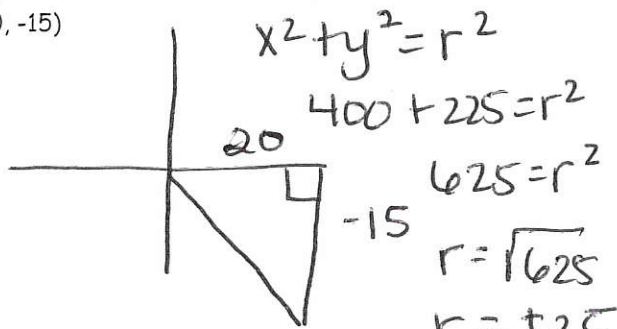 , -15)
x² + y² = r²
400 + 225 = r²
20
625 = r²
-15
r = √625
r = ±25